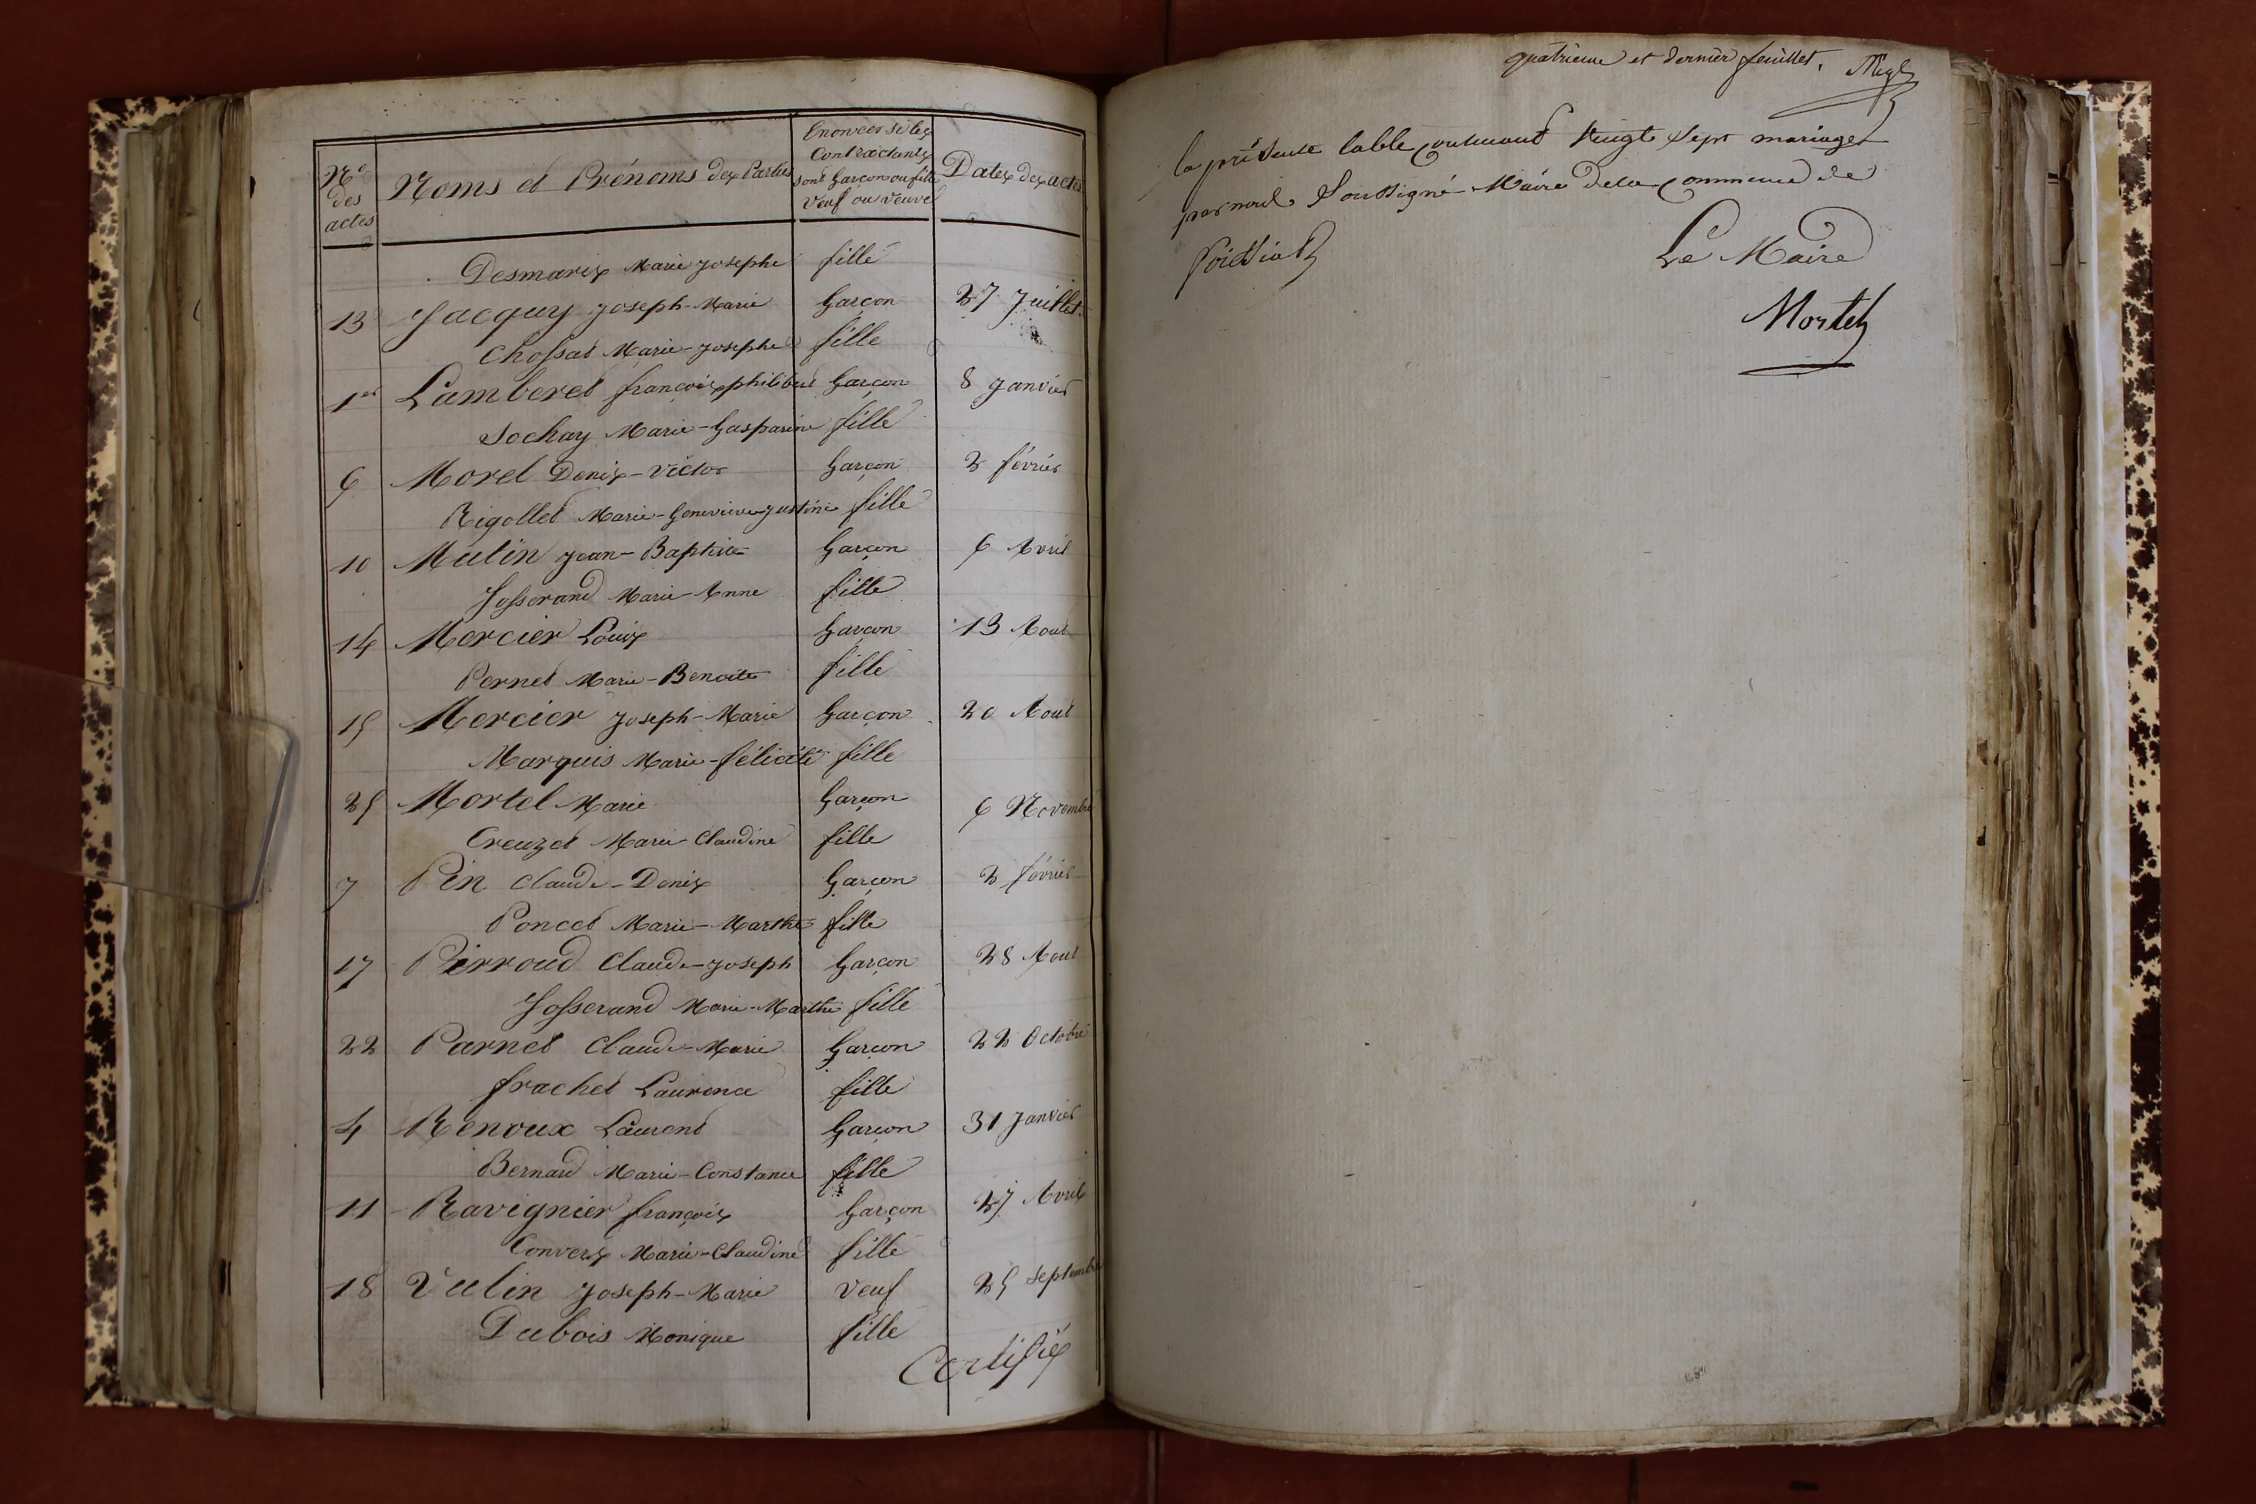 Nos des actes
Noms et Prénoms des Parties
Enoncer si les Contractants sont Garçon ou fille Veuf ou Veuve
Dates des actes
Desmaris Marie Josephe fille
13 Jacquy Joseph-Marie Garçon 27 Juillet
Chossat Marie-Josephe fille
1er Lamberet françois philibert Garçon 8 Janvier
Sochay Marie-Gasparine fille
6 Morel Denis-Victor Garçon 2 février
Rigollet Marie-Genevieve-Justine fille
10 Mulin Jean-Baptiste Garçon 6 Avril
Josserand Marie-Anne fille
14 Mercier Louis Garçon 13 Aout
Pernet Marie-Benoite fille
15 Mercier Joseph-Marie Garçon 20 Aout
Marquis Marie-félicité fille
25 Mortel Marie Garçon 6 Novembre
Creuzet Marie-Claudine fille
7 Pin Claude-Denis Garçon 2 février
Poncet Marie-Marthe fille
17 Pirroud Claude-Joseph Garçon 28 Aout
Josserand Marie-Marthe fille
22 Parnet Claude-Marie Garçon 22 Octobre
frachet Laurence fille
4 Renoux Laurent Garçon 31 Janvier
Bernard Marie-Constance fille
11 Ravignier françois Garçon 27 Avril
Convers Marie-Claudine fille
18 Vulin Joseph-Marie Veuf 25 septembre
Dubois Monique fille
Certifié
quatrieme et dernier feuillet.
la présente table contenant Vingt Sept mariages
par moi Soussigné Maire de la Commune de
Poissiat
Le Maire
Mortel